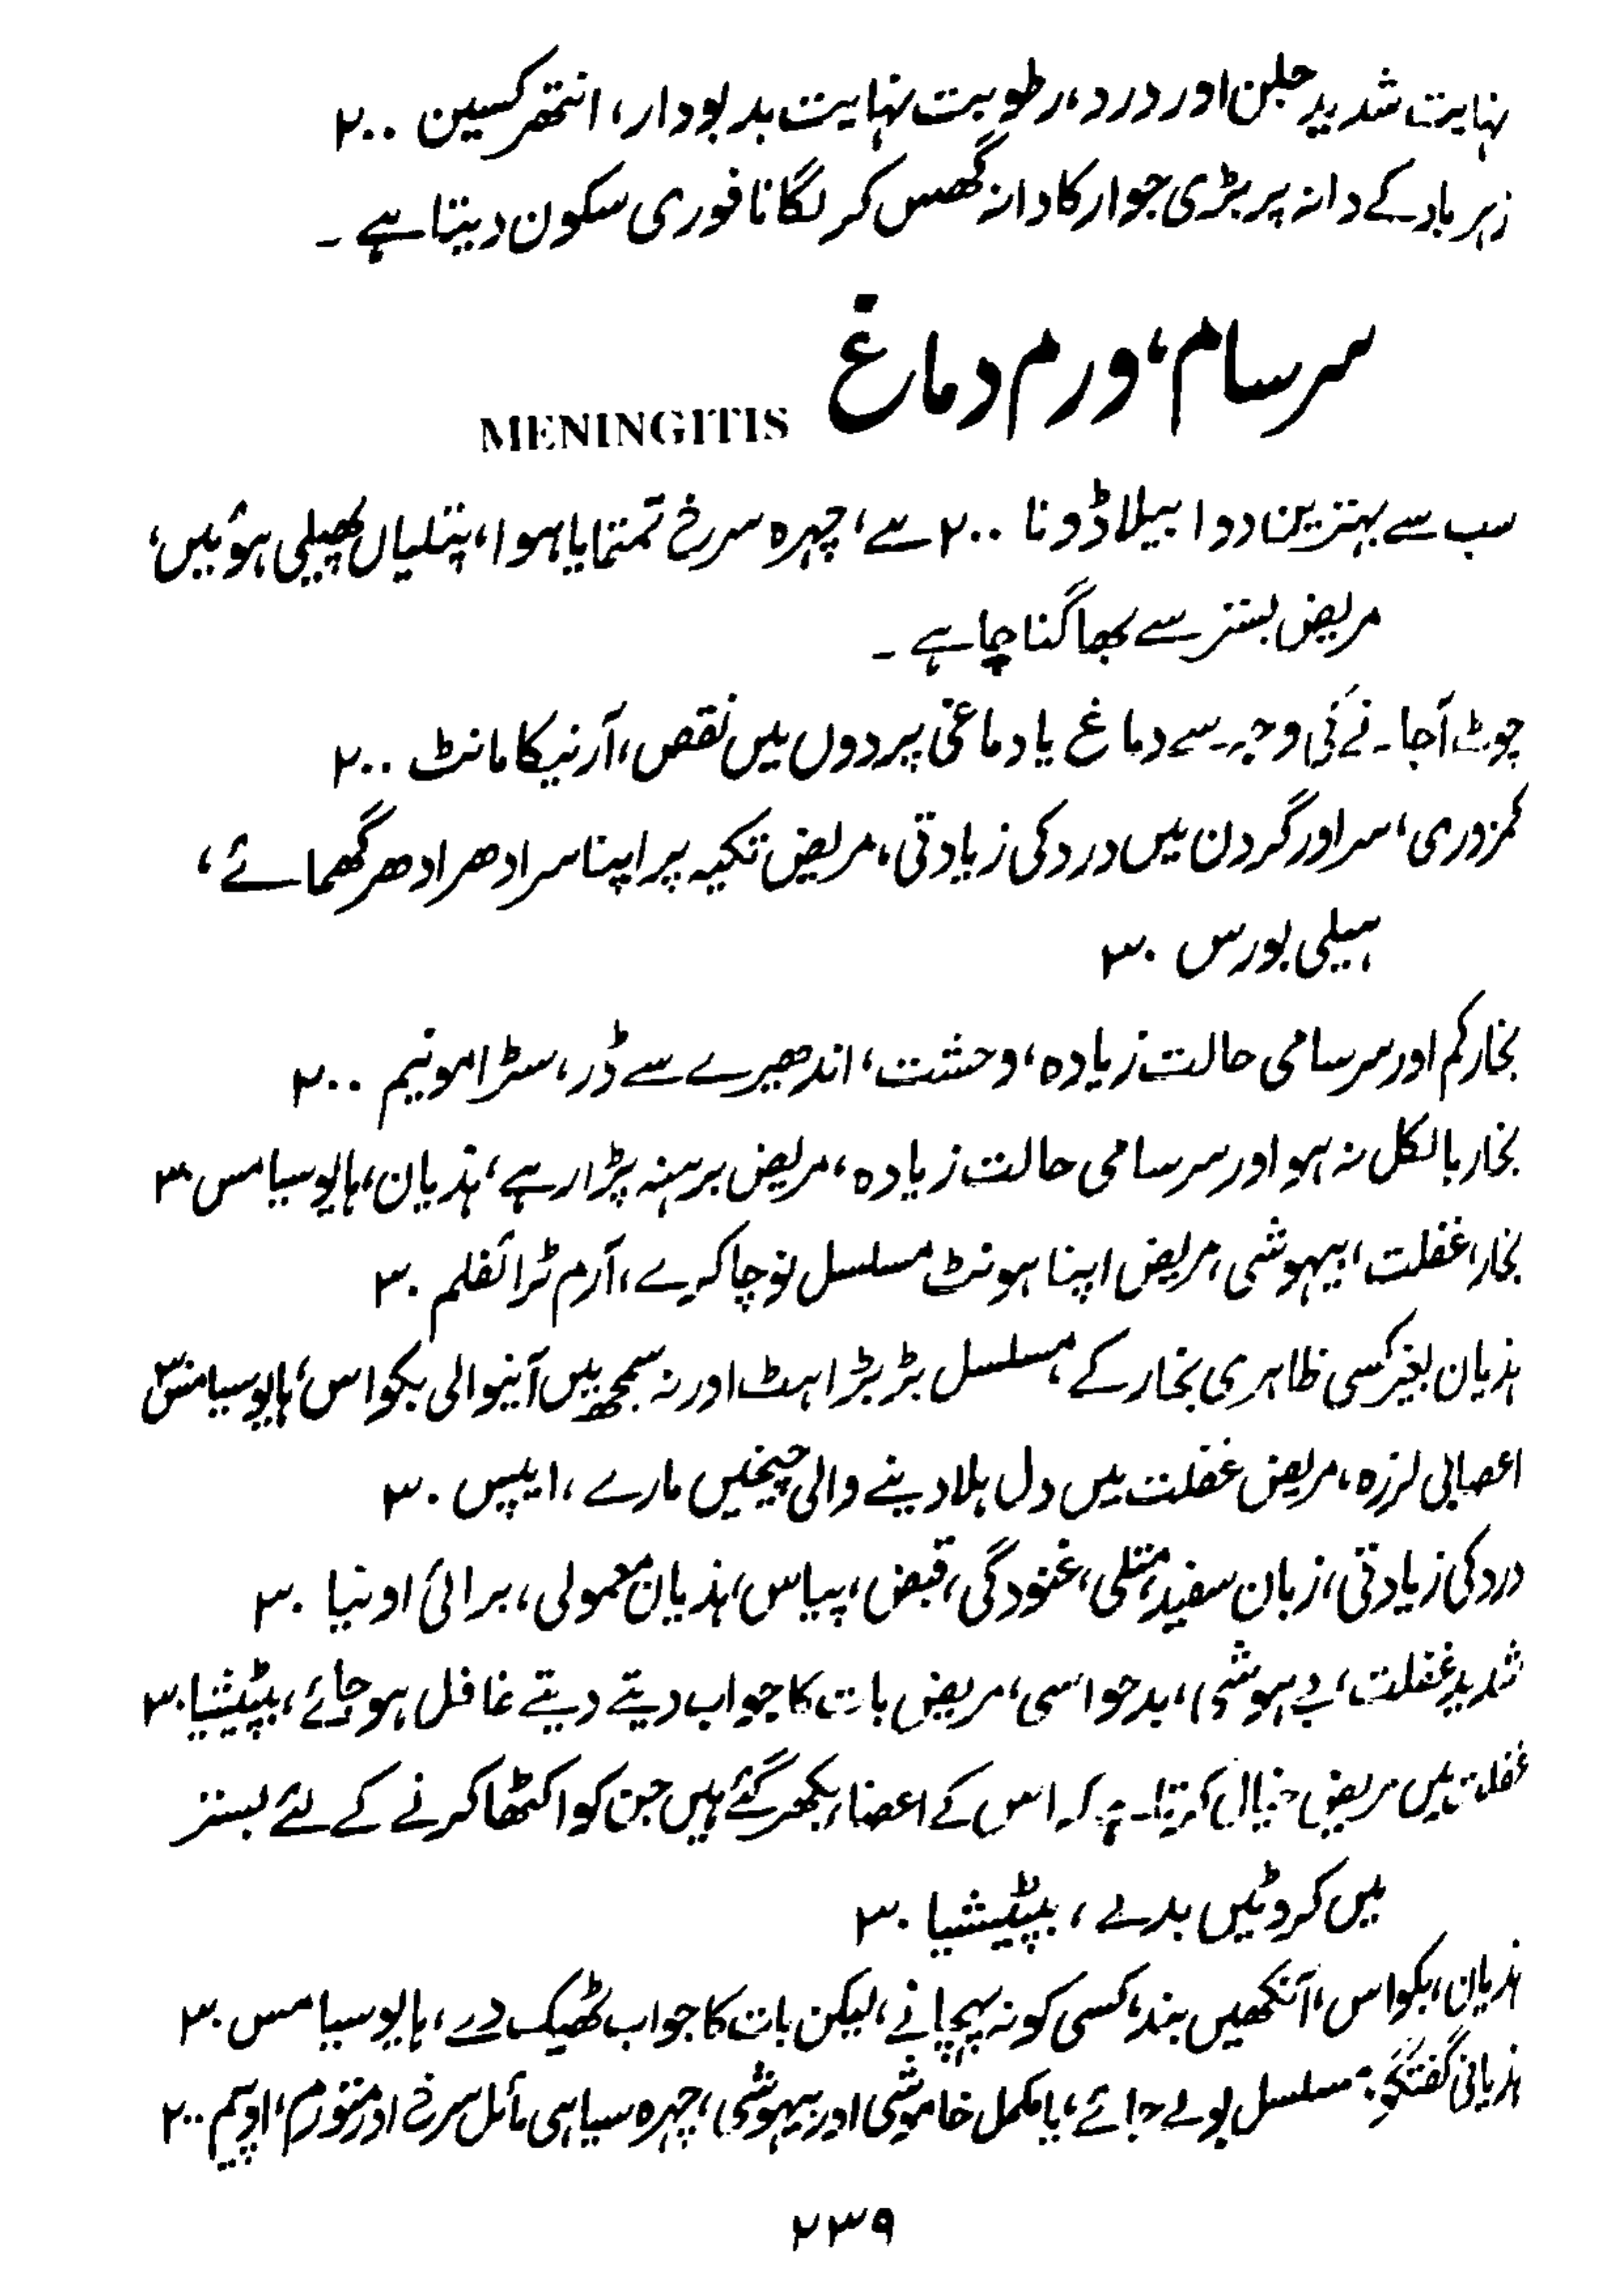 نہایت شدید جلن اور درد، رطوبت نہایت بدبودار، انتھرکسین ۲۰۰
زہرباد کے دانہ پر بڑی جوار کا دانہ گھس کر لگانا فوری سکون دیتا ہے ۔
سرسام، ورم دماغ MENINGITIS
سب سے بہترین دوا بیلاڈونا ۲۰۰ سے، چہرہ سرخ تمتمایا ہوا، پتلیاں پھیلی ہوئیں،
مریض بستر سے بھاگنا چاہے ۔
چوٹ آجانے کی وجہ سے دماغ یا دماغی پردوں میں نقص، آرنیکا مانٹ ۲۰۰
کمزوری، سر اور گردن میں درد کی زیادتی، مریض تکیہ پر اپنا سر ادھر ادھر گھمائے،
ہیلی بورس ۳۰
بخار کم اور سرسامی حالت زیادہ، وحشت، اندھیرے سے ڈر، سٹرامونیم ۲۰۰
بخار بالکل نہ ہو اور سرسامی حالت زیادہ، مریض برہنہ پڑا رہے، ہذیان، ہایوسیامس ۳۰
بخار، غفلت، بیہوشی، مریض اپنا ہونٹ مسلسل نوچا کرے، آرم ٹرائفلم ۳۰
ہذیان بغیر کسی ظاہری بخار کے، مسلسل بڑبڑاہٹ اور نہ سمجھ میں آنیوالی بکواس، ہایوسیامس ۳۰
اعصابی لرزہ، مریض غفلت میں دل ہلا دینے والی چیخیں مارے، ایپس ۳۰
درد کی زیادتی، زبان سفید، متلی، غنودگی، قبض، پیاس، ہذیان معمولی، برائی اونیا ۳۰
شدید غفلت، بے ہوشی، بدحواسی، مریض بات کا جواب دیتے دیتے غافل ہو جائے، بپٹیشیا ۳۰
غفلت میں مریض خیال کرتا ہے کہ اس کے اعضاء بکھر گئے ہیں جن کو اکٹھا کرنے کے لئے بستر
میں کروٹیں بدلے، بپٹیشیا ۳۰
ہذیان، بکواس، آنکھیں بند، کسی کو نہ پہچانے، لیکن بات کا جواب ٹھیک دے، ہایوسیامس ۳۰
ہذیانی گفتگو: مسلسل بولے جائے، یا مکمل خاموشی اور بیہوشی، چہرہ سیاہی مائل سرخ اور متورم، اوپیم ۲۰۰
۲۳۹